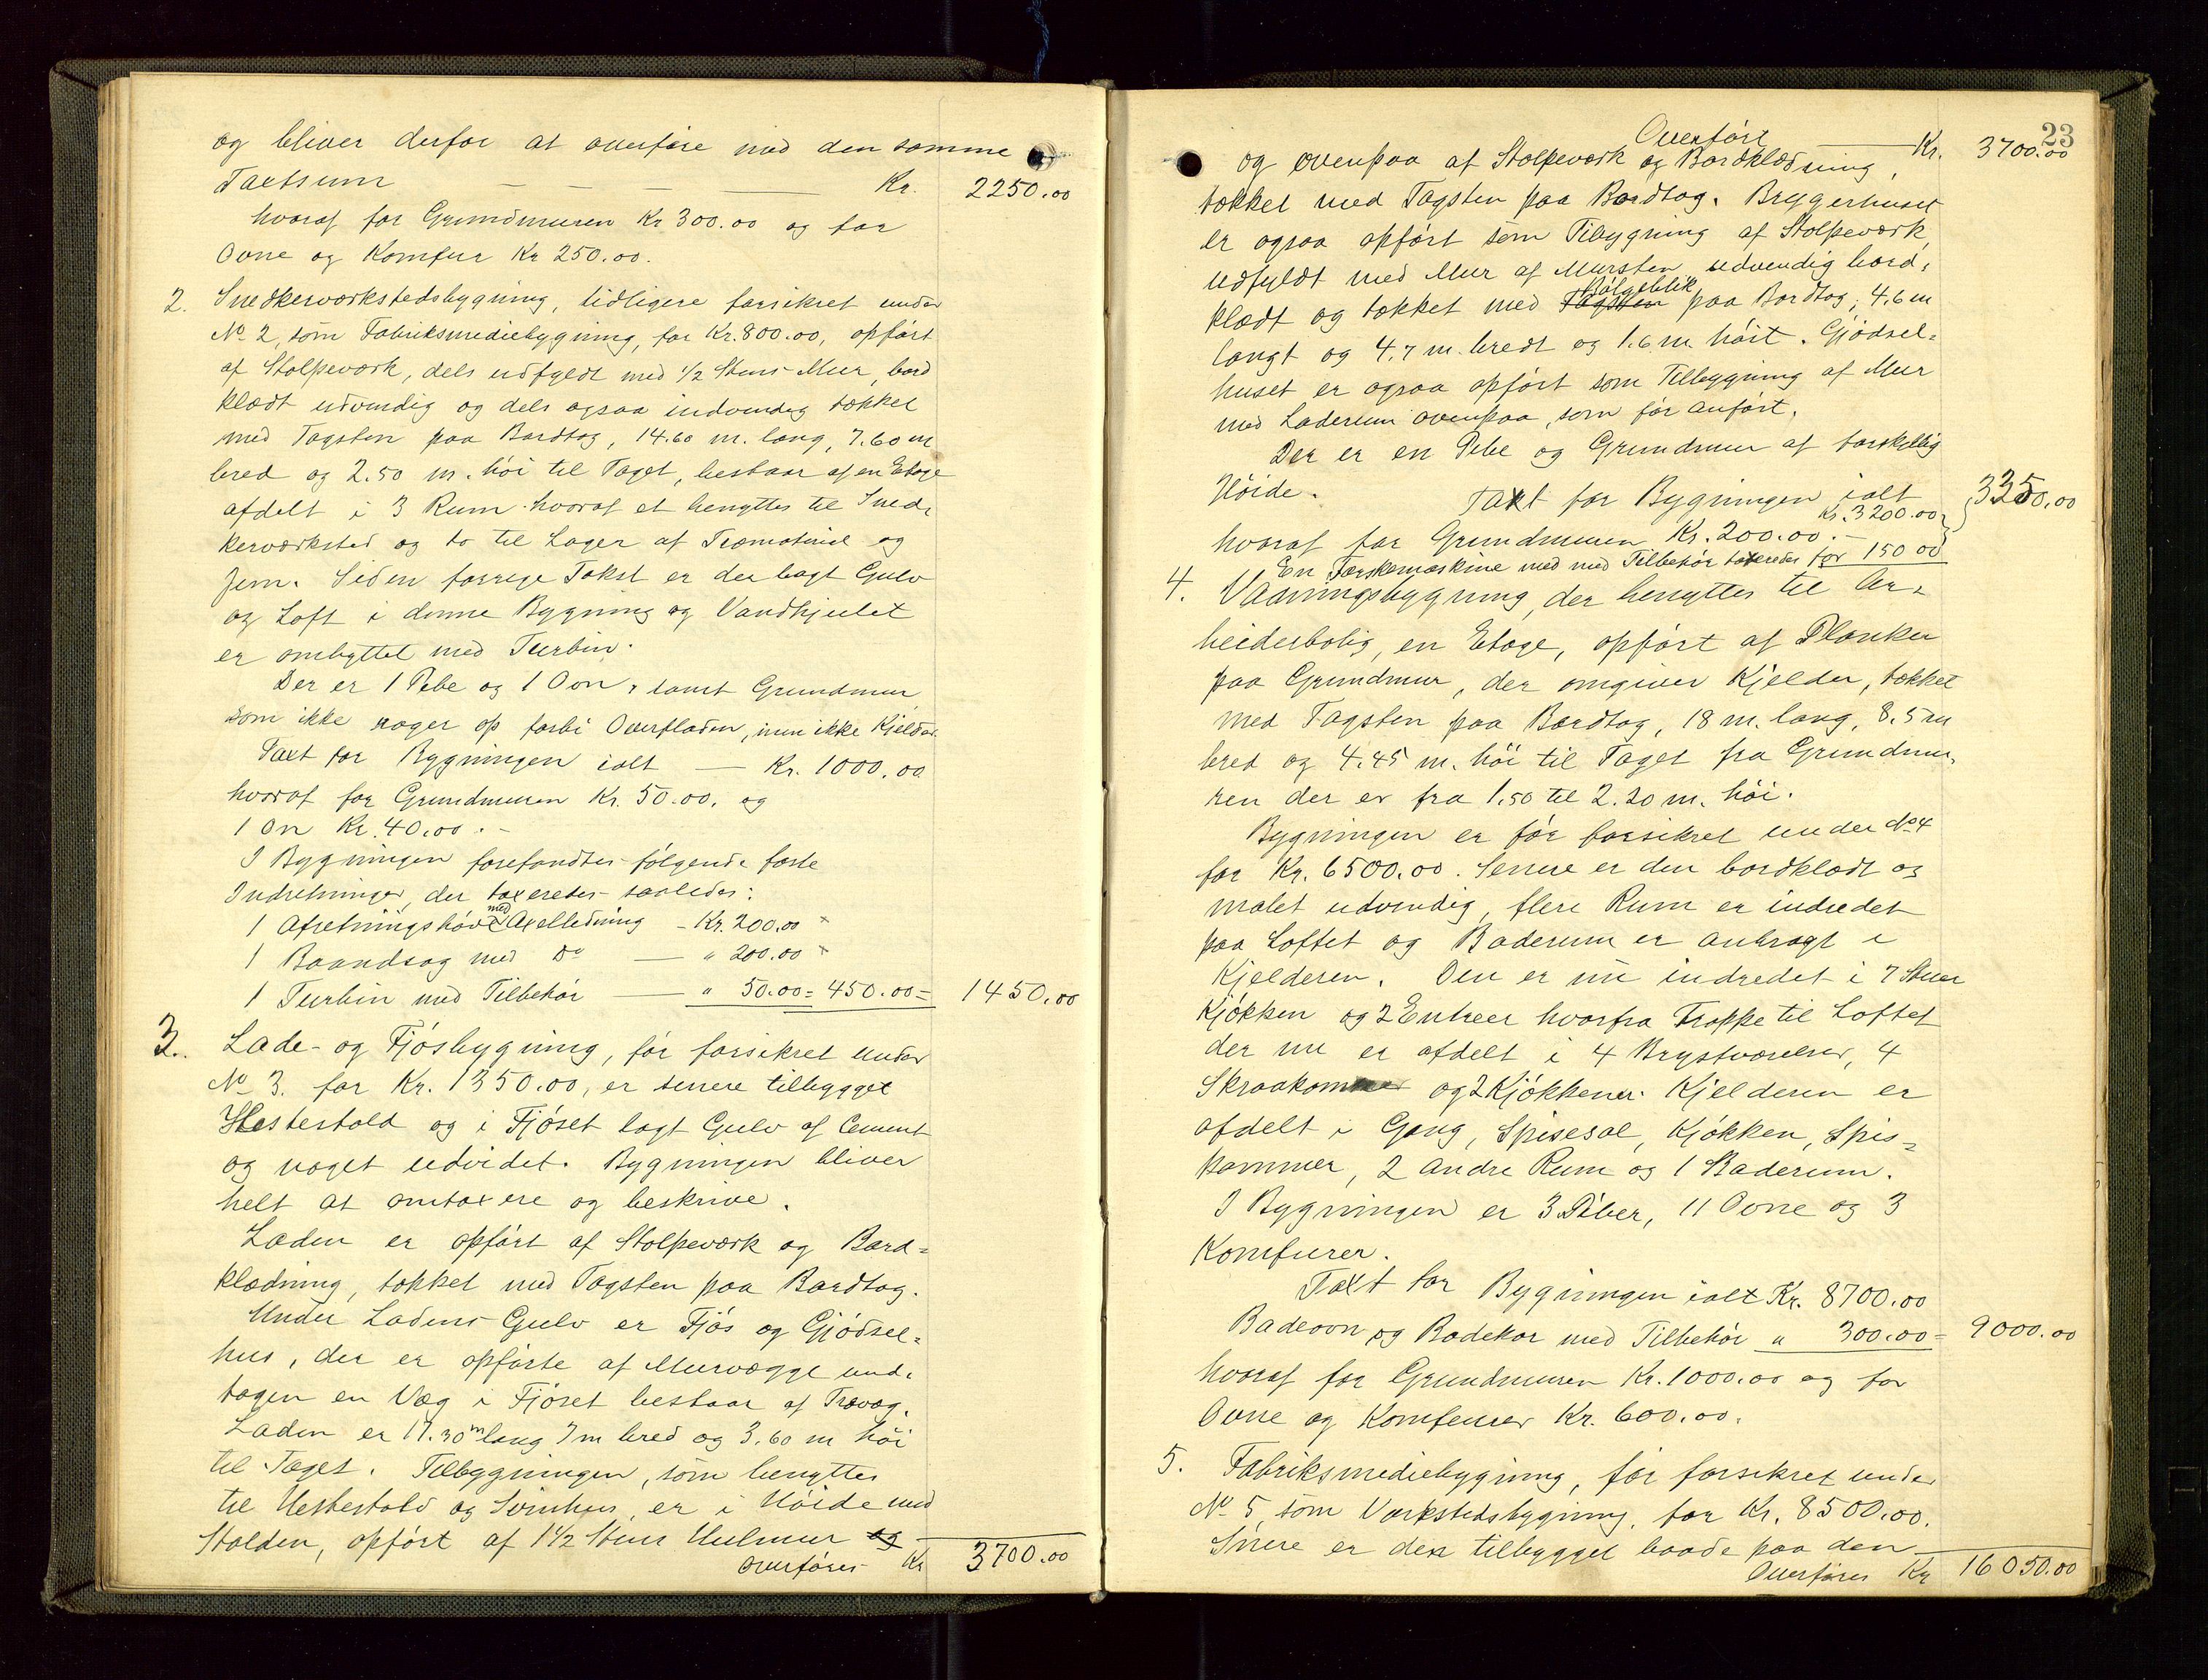 og bliver derfor at overføre med den samme
Taxtsum — — — — Kr. 2250.00
hvoraf for Grundmuren Kr 300.00 og for
Ovne og Komfur Kr 250.00.
2. Snedkerværkstedsbygning, tidligere forsikret under
No 2, som Fabriksmediebygning, for Kr. 800.00, opført
af Stolpeværk, dels udfyldt med 1/2 Stens Mur, bord
klædt udvendig og dels ogsaa indvendig tækket
med Tagsten paa Bordtag, 14.60 m. lang, 7.60 m
bred og 2.50 m. høi til Taget, bestaar af en Etage
afdelt i 3 Rum hvoraf et benyttes til Sned-
kerværksted og to til Lager af Træmateriel og
Jern. Siden forrige Takst er der lagt Gulv
og Loft i denne Bygning og Vandhjulet
er ombyttet med Turbin.
Der er 1 Pibe og 1 Ovn, samt Grundmur
som ikke rager op forbi Overfladen, men ikke Kjelder.
Taxt for Bygningen ialt — Kr. 1000.00
hvoraf for Grundmuren Kr. 50.00. og
1 On Kr. 40.00. -
I Bygningen forefandtes følgende faste
Indretninger, der taxeredes saaledes:
1 Afretningshøvl med Axelledning - Kr. 200.00
1 Baandsag med Do — " 200.00
1 Turbin med Tilbehør — " 50.00 = 450.00 = 1450.00
3. Lade- og Fjøsbygning, før forsikret under
No 3. for Kr. 1350.00, er senere tilbygget
Hestestald og i Fjøset lagt Gulv af Cement
og noget udvidet. Bygningen bliver
helt at omtaxere og beskrive.
Laden er opført af Stolpeværk og Bord-
klædning, tækket med Tagsten paa Bordtag.
Under Ladens Gulv er Fjøs og Gjødsel-
hus, der er opførte af Murvægge und-
tagen en Væg i Fjøset bestaar af Trævæg.
Laden er 17.30 m lang 7 m bred og 3.60 m høi
til Taget. Tilbygningen, som benyttes
til Hestestald og Svinhus, er i Høide med
Stalden, opført af 1 1/2 Stens Hulmur og
Overføres Kr 3700.00
23
Overført — Kr. 3700.00
og ovenpaa af Stolpeværk og Bordklædning,
tækket med Tagsten paa Bordtag. Bryggerhuset
er ogsaa opført som Tilbygning af Stolpeværk,
udfyldt med Mur af Mursten, udvendig bord-
Bølgeblik
klædt og tækket med Tagsten paa Bordtag, 4.6 m
langt og 4.7 m. bredt og 1.6 m. høit. Gjødsel-
huset er ogsaa opført som Tilbygning af Mur
med Laderum ovenpaa, som før anført.
Der er en Pibe og Grundmur af forskellig
Høide.
Taxt for Bygningen ialt Kr. 3200.00 } 3350.00
hvoraf for Grundmuren Kr. 200.00. -
En Tærskemaskine med med Tilbehør taxeredes for 150 00
4. Vaaningsbygning, der benyttes til Ar-
beiderbolig, en Etage, opført af Planker
paa Grundmur, der omgiver Kjelder, tækket
med Tagsten paa Bordtag, 18 m. lang, 8.5 m
bred og 4.45 m. høi til Taget fra Grundmu-
ren der er fra 1.50 til 2.20 m. høi.
Bygningen er før forsikret under No 4
for Kr. 6500.00. Senere er den bordklædt og
malet udvendig, flere Rum er indredet
paa Loftet og Baderum er anbragt i
Kjelderen. Den er nu indredet i 7 Stuer
Kjøkken og 2 Entreer hvorfra Trappe til Loftet
der nu er afdelt i 4 Brystværelser, 4
Skraakammer og 2 Kjøkkener. Kjelderen er
afdelt i Gang, Spisesal, Kjøkken, Spis-
kammer, 2 andre Rum og 1 Baderum.
I Bygningen er 3 Piber, 11 Ovne og 3
Komfurer.
Taxt for Bygningen ialt Kr. 8700.00
Badeovn og Badekar med Tilbehør " 300.00 = 9000.00
hvoraf for Grundmuren Kr. 1000.00 og for
Ovne og Komfurer Kr. 600.00.
5. Fabriksmediebygning, før forsikret under
No 5, som Værkstedsbygning, for Kr. 8500.00.
Senere er den tilbygget baade paa den
Overføres Kr 16050.00